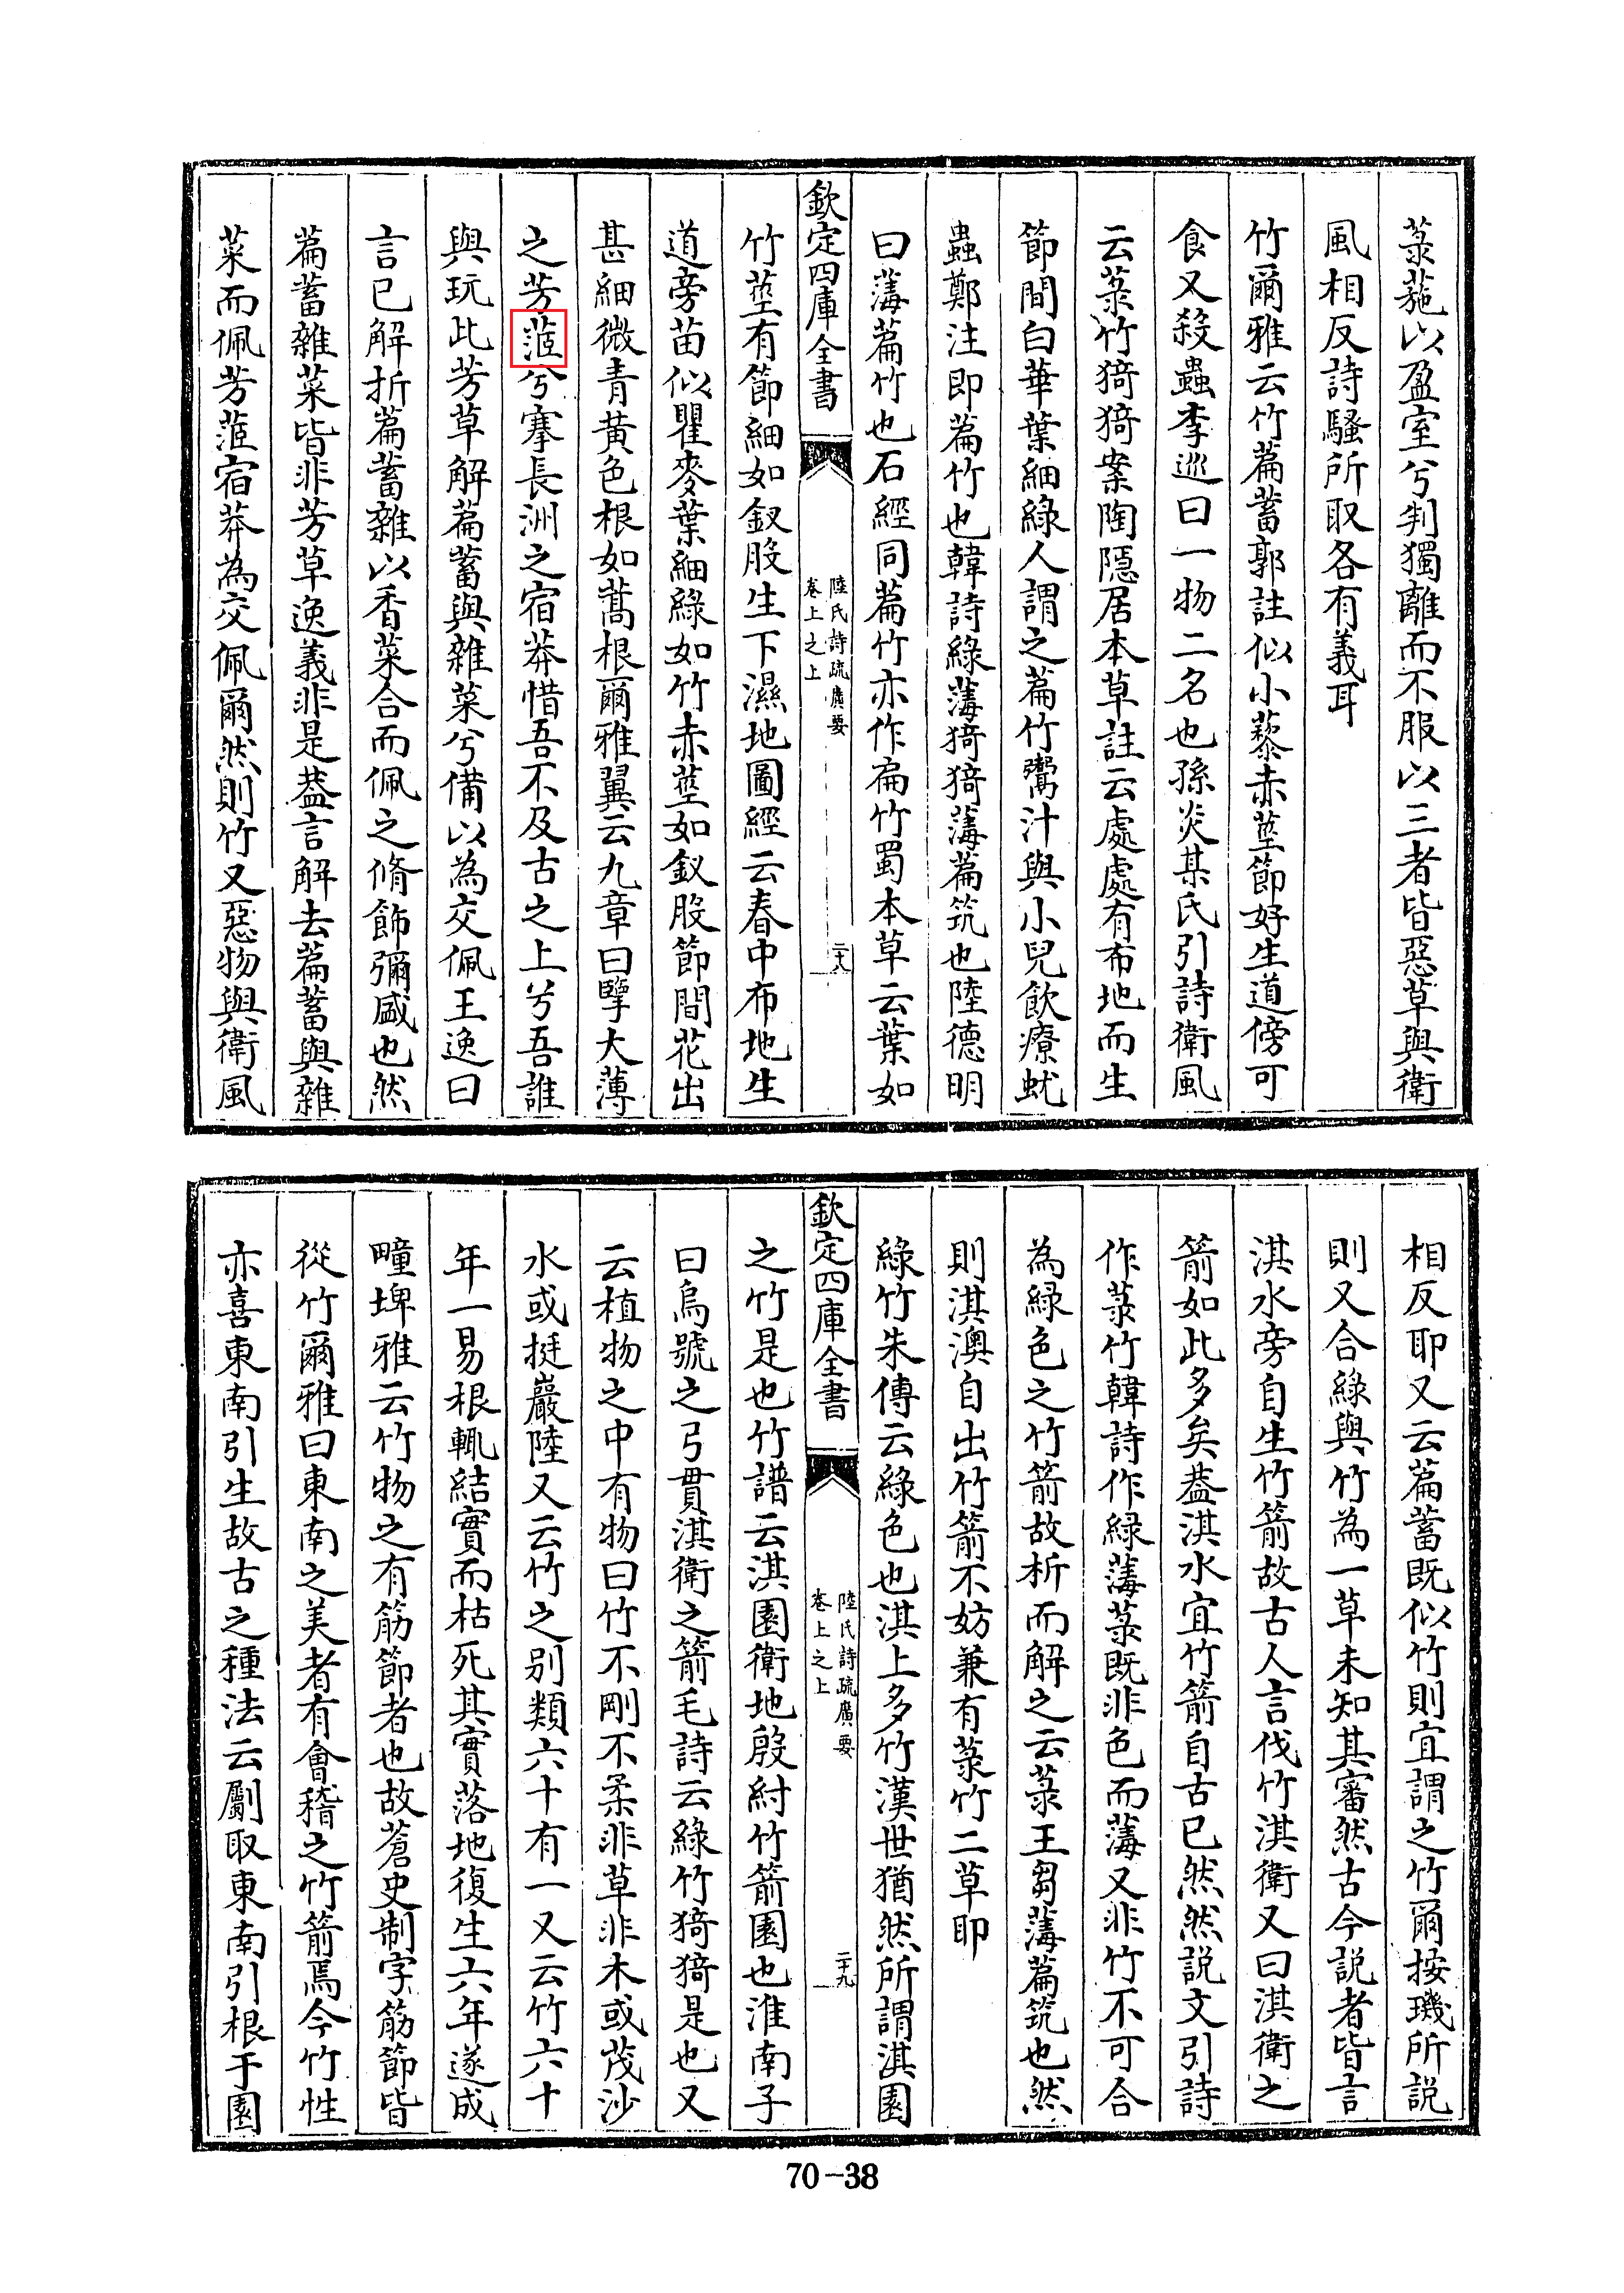 菉葹以盈室兮判獨離而不服以三者皆惡草與衛
風相反詩騷所取各有義耳
竹爾雅云竹萹蓄郭註似小藜赤莖節好生道傍可
食又殺蟲李巡曰一物二名也孫炎某氏引詩衛風
云菉竹猗猗案陶隱居本草註云處處有布地而生
節間白華葉細綠人謂之萹竹鬻汁與小兒飲療蚘
蟲鄭注即萹竹也韓詩綠薄猗猗薄萹筑也陸德明
曰薄萹竹也石經同萹竹亦作扁竹蜀本草云葉如
欽定四庫全書
陸氏詩疏廣要
卷上之上
二十八
竹莖有節細如釵股生下濕地圖經云春中布地生
道旁苗似瞿麥葉細綠如竹赤莖如釵股節間花出
甚細微青黃色根如蒿根爾雅翼云九章曰擥大薄
之芳茝兮搴長洲之宿莽惜吾不及古之上兮吾誰
與玩此芳草解萹蓄與雜菜兮備以為交佩王逸曰
言已解折萹蓄雜以香菜合而佩之脩飾彌盛也然
萹蓄雜菜皆非芳草逸義非是葢言解去萹蓄與雜
菜而佩芳茝宿莽為交佩爾然則竹又惡物與衛風
相反耶又云萹蓄既似竹則宜謂之竹爾按璣所説
則又合綠與竹為一草未知其審然古今説者皆言
淇水旁自生竹箭故古人言伐竹淇衛又曰淇衛之
箭如此多矣葢淇水宜竹箭自古已然然説文引詩
作菉竹韓詩作綠薄菉既非色而薄又非竹不可合
為綠色之竹箭故析而解之云菉王芻薄萹筑也然
則淇澳自出竹箭不妨兼有菉竹二草耶
綠竹朱傳云綠色也淇上多竹漢世猶然所謂淇園
欽定四庫全書
陸氏詩疏廣要
卷上之上
二十九
之竹是也竹譜云淇園衛地殷紂竹箭園也淮南子
曰烏號之弓貫淇衛之箭毛詩云綠竹猗猗是也又
云植物之中有物曰竹不剛不柔非草非木或茂沙
水或挺巖陸又云竹之別類六十有一又云竹六十
年一易根輒結實而枯死其實落地復生六年遂成
疃埤雅云竹物之有筋節者也故蒼史制字筋節皆
從竹爾雅曰東南之美者有會稽之竹箭焉今竹性
亦喜東南引生故古之種法云劚取東南引根于園
70-38